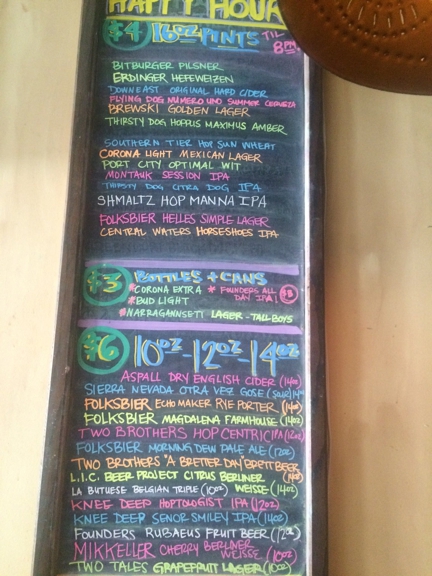 HAPPY HOUR
$4 16oz PINTS TIL 8PM
BITBURGER PILSNER
ERDINGER HEFEWEIZEN
DOWNEAST ORIGINAL HARD CIDER
FLYING DOG NUMERO UNO SUMMER CERVEZA
BREWSKI GOLDEN LAGER
THIRSTY DOG HOPPUS MAXIMUS AMBER
SOUTHERN TIER HOP SUN WHEAT
CORONA LIGHT MEXICAN LAGER
PORT CITY OPTIMAL WIT
MONTAUK SESSION IPA
THIRSTY DOG CITRA DOG IPA
SHMALTZ HOP MANNA IPA
FOLKSBIER HELLES SIMPLE LAGER
CENTRAL WATERS HORSESHOES IPA
$3 BOTTLES + CANS
*CORONA EXTRA * FOUNDERS ALL DAY IPA!
*BUD LIGHT
*NARRAGANSETT LAGER - TALL BOYS
$6 10oz-12oz-14oz
ASPALL DRY ENGLISH CIDER (14oz)
SIERRA NEVADA OTRA VEZ GOSE (SOUR) 14oz
FOLKSBIER ECHO MAKER RYE PORTER (14oz)
FOLKSBIER MAGDALENA FARMHOUSE (14oz)
TWO BROTHERS HOP CENTRIC IPA (12oz)
FOLKSBIER MORNING DEW PALE ALE (12oz)
TWO BROTHERS "A BRETTER DAY" BRETT BEER
L.I.C. BEER PROJECT CITRUS BERLINER
LA BUTUESE BELGIAN TRIPLE (10oz) WEISSE (14oz)
KNEE DEEP HOPTOLOGIST IPA (12oz)
KNEE DEEP SENOR SMILEY IPA (14oz)
FOUNDERS RUBAEUS FRUIT BEER (12oz)
MIKKELLER CHERRY BERLINER WEISSE (10oz)
TWO TALES GRAPEFRUIT LAGER (10oz)